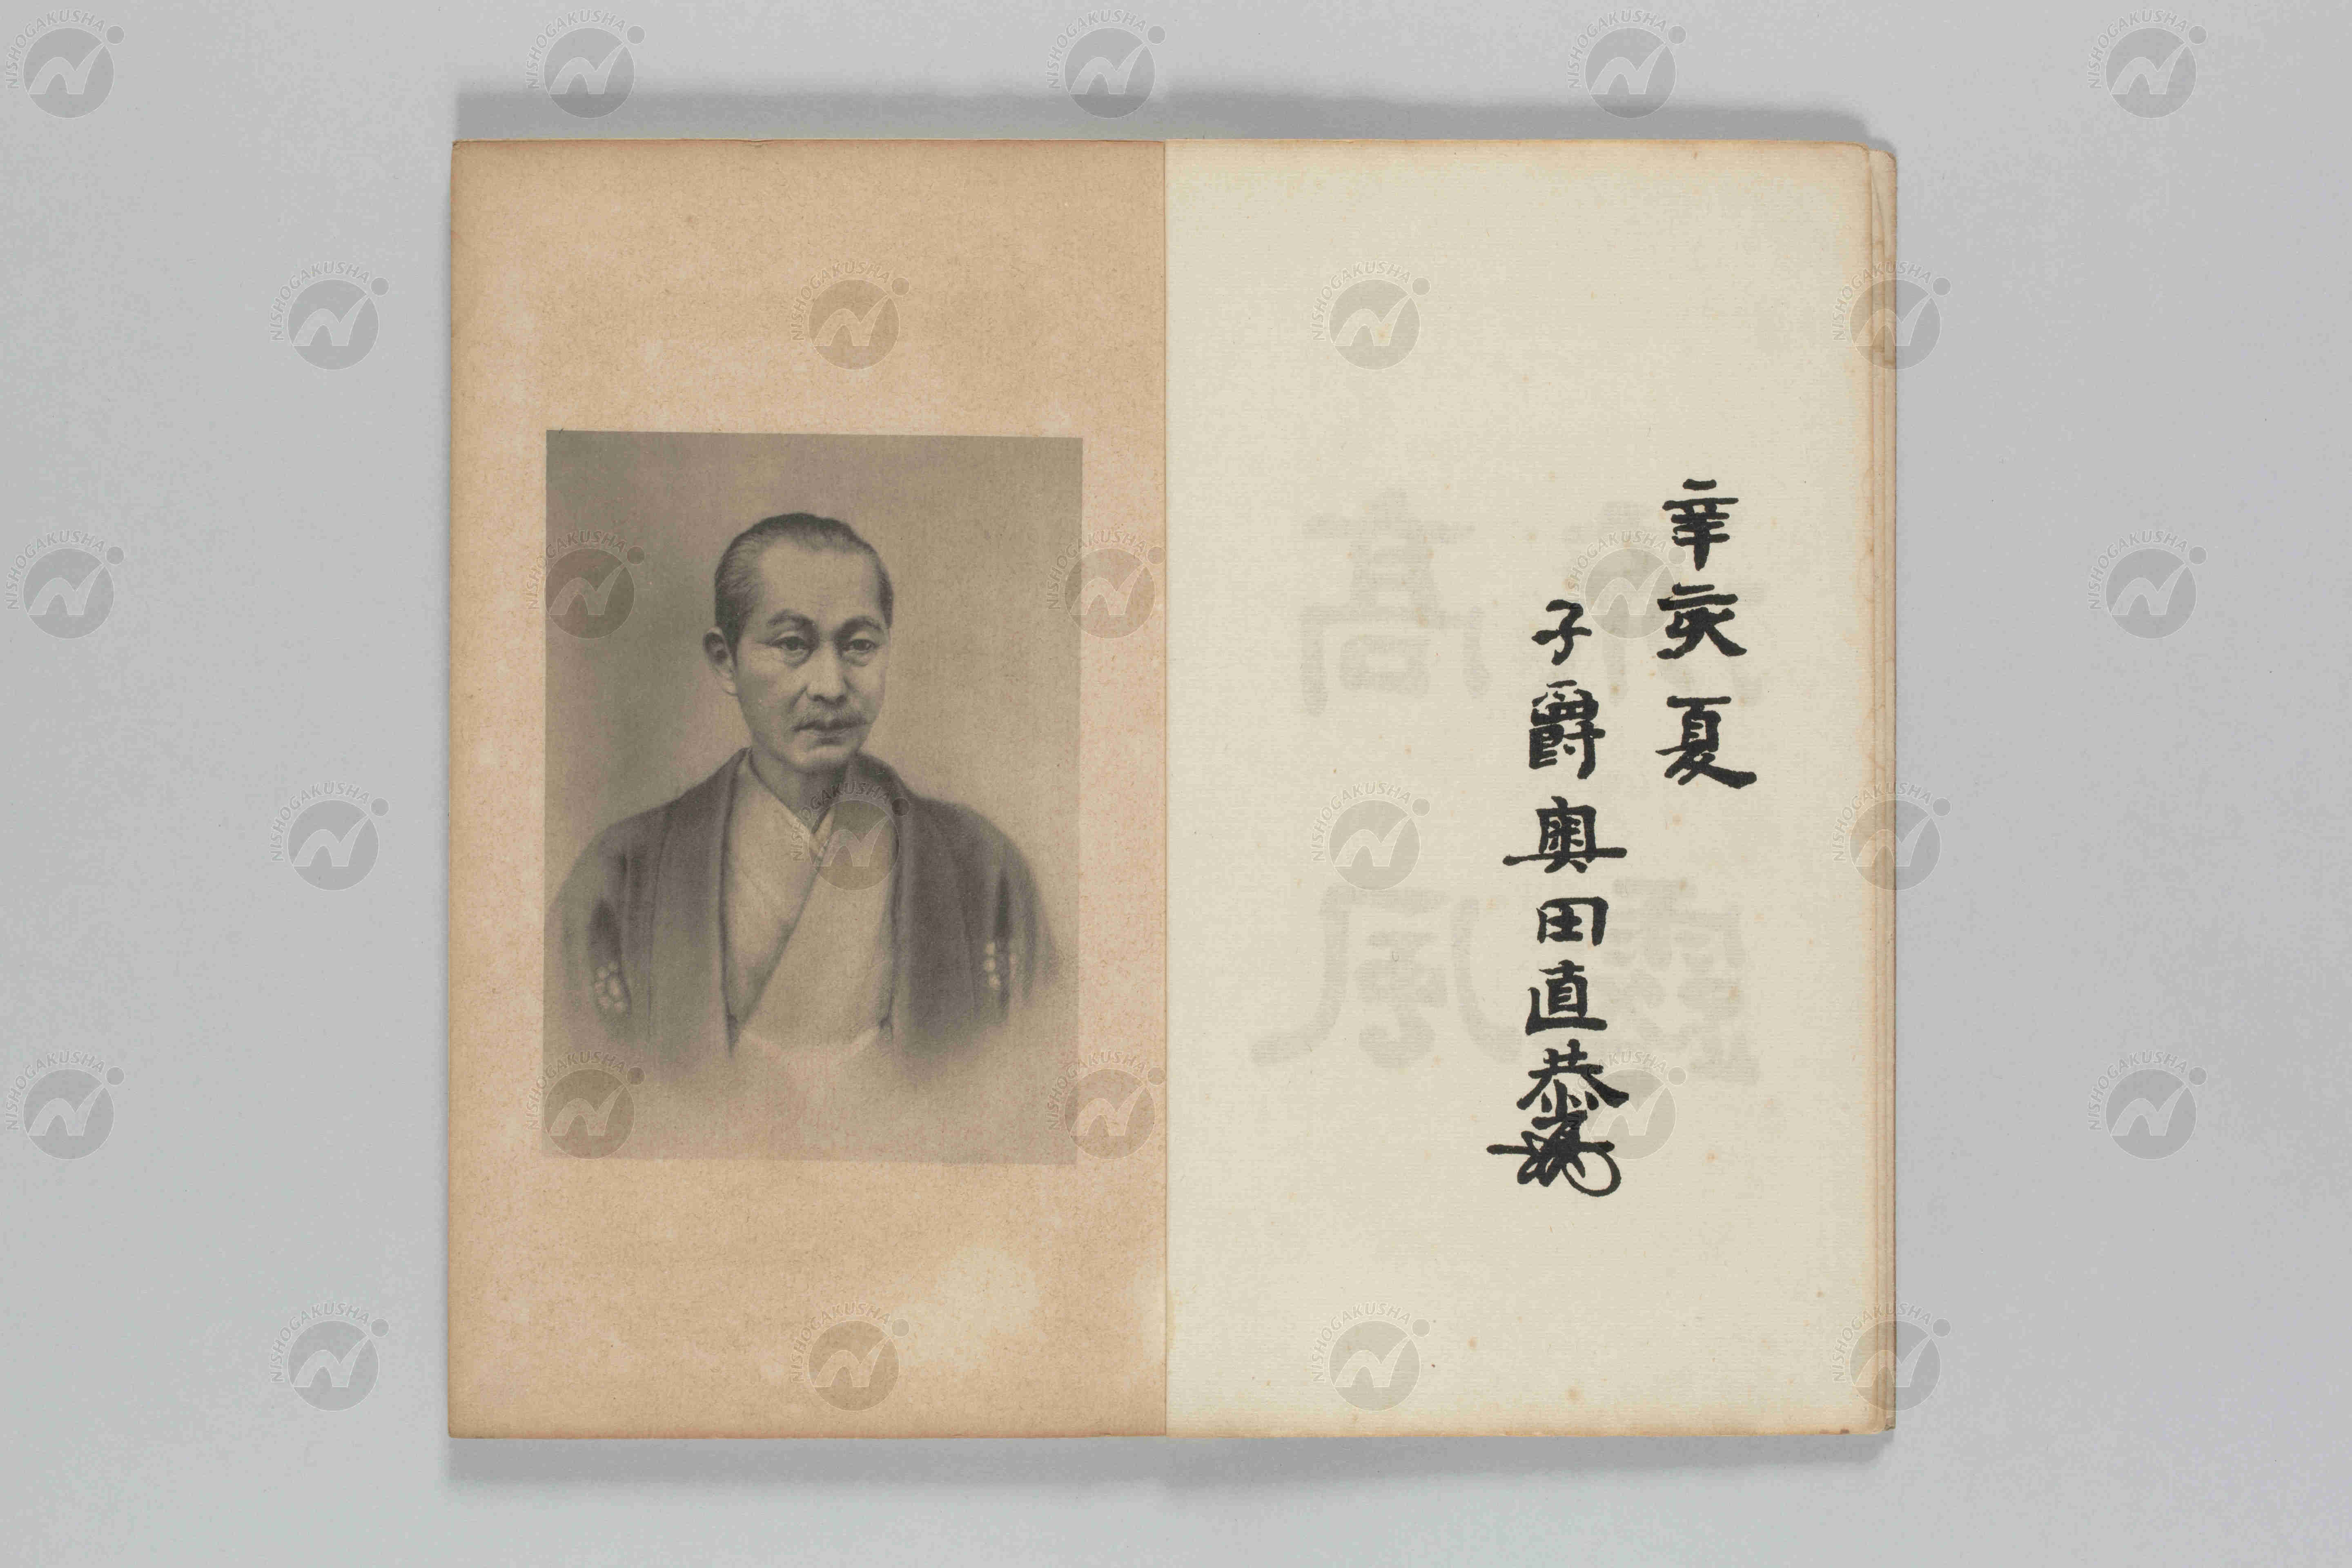 辛亥夏
子爵奥田直恭
NISHOGAKUSHA